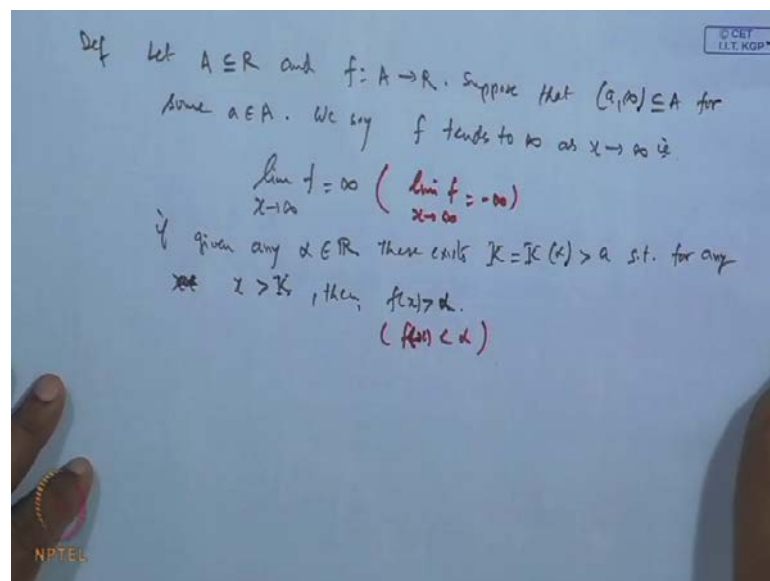 © CET
I.I.T. KGP
Def Let A ⊆ R and f: A → R. Suppose that (a,∞) ⊆ A for
some a ∈ A. We say f tends to ∞ as x → ∞ is
lim f = ∞ ( lim f = -∞ )
x→∞ x→∞
if given any α ∈ R there exists K = K(α) > a s.t. for any
x > K, then f(x) > α.
( f(x) < α )
NPTEL